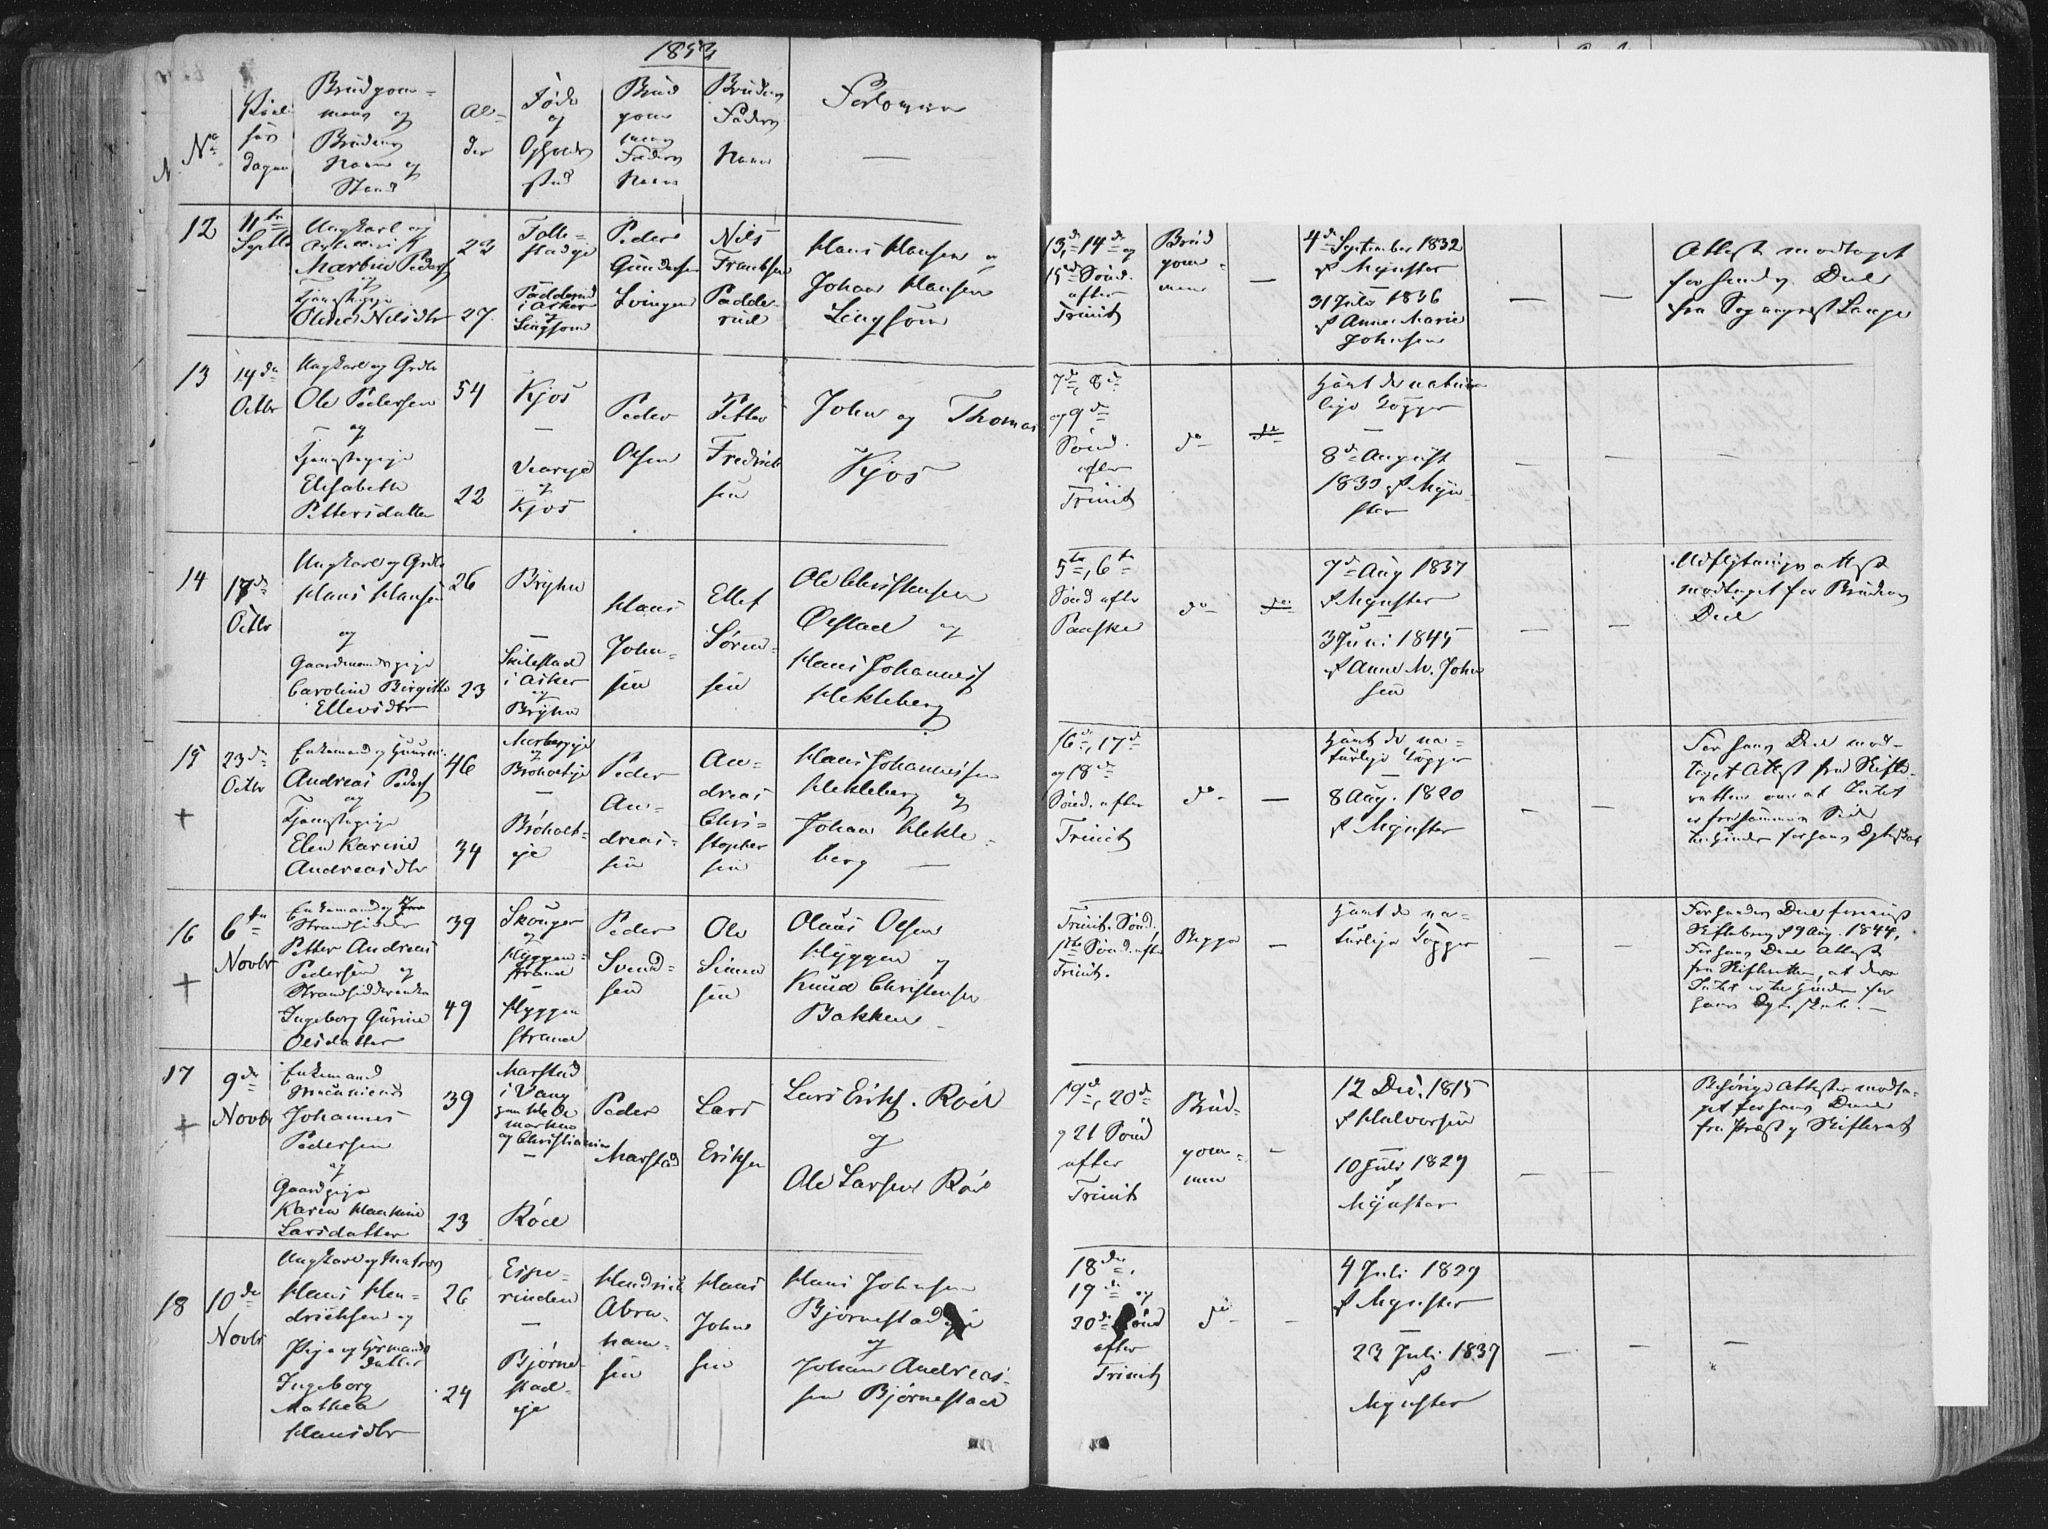 185
No
Vielses
dagen
Brudgom-
mens og
Brudens
Navn og
Stand
Al-
der
Føde
og
Opholds
sted
Brud
gom
mens
Faders
Navn
Brudens
Faders
Navn
Forlovere
12
11te
Septbr
Ungkarl og
Martin Peders
og
Tjenestepige
Oline Nilsdtr
23
27
Tolle-
stadeje
Padderud
i Asker
og
Lingsom
Peder
Gundersen
Svingen
Nils
Frantsen
Padde-
rud
Hans Hansen og
Johan Hansen
Lingsom
13
14de
Octbr
Ungkarl og Grdbr
Ole Pedersen
og
Tjenestepige
Elisabeth
Pettersdatter
54
22
Kjos
—
Veareje
og
Kjos
Peder
Olsen
Petter
Fredrik
sen
John og Thomas
Kjos
14
17de
Octbr
Ungkarl og Grdbr
Hans Hansen
og
Gaardmandspige
Caroline Birgitte
Ellevsdtr
26
23
Bryhn
—
Skilestad
i Asker
og
Bryhn
Hans
John-
sen
Ellef
Søren-
sen
Ole Christensen
Ovstad og
Hans Johanness
Hekleberg
15
+
23de
Octbr
Enkemand og Huusm.
Andreas Peders
og
Tjenestepige
Elen Karine
Andreasdtr
46
34
og
Broholteje
—
Broholt-
eje
Peder
An-
dreas-
sen
An-
dreas
Chri-
stopher
sen
Hans Johannessen
Hekleberg og
Johan Hekle-
berg —
16
+
6te
Novbr
Enkemand og
Strandsidder
Petter Andreas
Pedersen og
Strandsidderenke
Ingeborg Gurine
Olsdatter
39
49
Skouger
og
Hyggen-
strand
—
Hyggen
strand
Peder
Svend-
sen
Ole
Simen
sen
Olaus Olsen
Hyggen og
Knud Christensen
Bakken
17
+
9de
Novbr
Enkemand
Johannes
Pedersen
og
Gaardpige
Karen Haakine
Larsdatter
39
23
Marstad
i Vang
paa Hede
marken
og Christiania
—
Röed
Peder
Marstad
Lars
Eriksen
Lars Eriks. Röed
og
Ole Larsen Röed
18
10de
Novbr
Ungkarl og Matros
Hans Hen-
drichsen og
Pige og
datter
Ingeborg
Mathea
Hansdtr
26
24
Espe-
rinden
—
Bjørne-
stad-
eje
Hendrick
Abra-
ham-
sen
Hans
John-
sen
Hans Johnsen
Bjørnestadeje
og
Johan Andreas-
sen Bjørnestad
13de, 14de og
15de Sönd.
after
Trinit
Brud
gom-
men
—
4de September 1832
af Mynster
—
31 Juli 1836
af Anne Marie
Johnsen
—
—
Attest modtaget
for hendes Deel
fra Sogneprest Lange
7de, 8de
og 9de
Sönd.
efter
Trinit
do
do
Havt de natur-
lige Kopper
—
8de August
1833 af Myn-
ster
—
—
—
5te, 6te
Sönd efter
Paaske
do
do
7de Aug 1837
af Mynster
—
3 Juni 1845
af Anne M. John
sen
—
—
Udflytningsattest
modtaget for Brudens
Deel
16de, 17de
og 18de
Sönd. efter
Trinit
do
—
Havt de na-
turlige Kopper
—
8 Aug. 1820
af Mynster
—
—
For hans Deel mod-
taget Attest fra Skifte-
retten om at Intet
er fra samme Side
til Hinder for hans Ægteskab
Trinit. Sönd.
1ste Sönd. efter
Trinit.
Begge
—
Havt de na-
turlige Kopper
—
For hendes Deel forevist
Skiftebrev af 9 Aug. 1844,
For hans Deel Attest
fra Skifteretten, at der
Intet er til Hinder for
hans Ægteskab. —
19de, 20de
og 21 Sönd
after
Trinit
Brud-
gom-
men
—
12 Dec. 1815
af Halvorsen
—
10 Juli 1829
af
Mynster
—
—
Behørige Attester modta-
get for hans Deel
fra Præst og Skifteret
18de,
19de og
20de Sönd
after
Trinit
do
—
4 Juli 1829
af Mynster
—
23 Juli 1837
af
Mynster
—
—
—